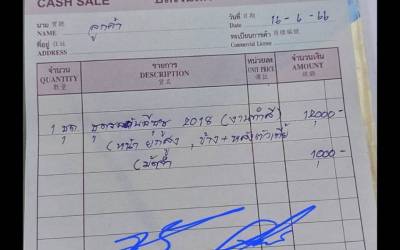 CASH SALE
นาม 寶號 ลูกค้า
NAME
วันที่ 日期 16-6-66
Date
ที่อยู่ 住址
ADDRESS
ทะเบียนการค้า
Commercial License
จำนวน รายการ หน่วยละ จำนวนเงิน
QUANTITY DESCRIPTION UNIT PRICE AMOUNT
數量 貨名
1 ชุด 2018 (งานทำสี) 12000-
(หน้ายกสูง, ข้าง+หลัง
(มัดจำ 1000-